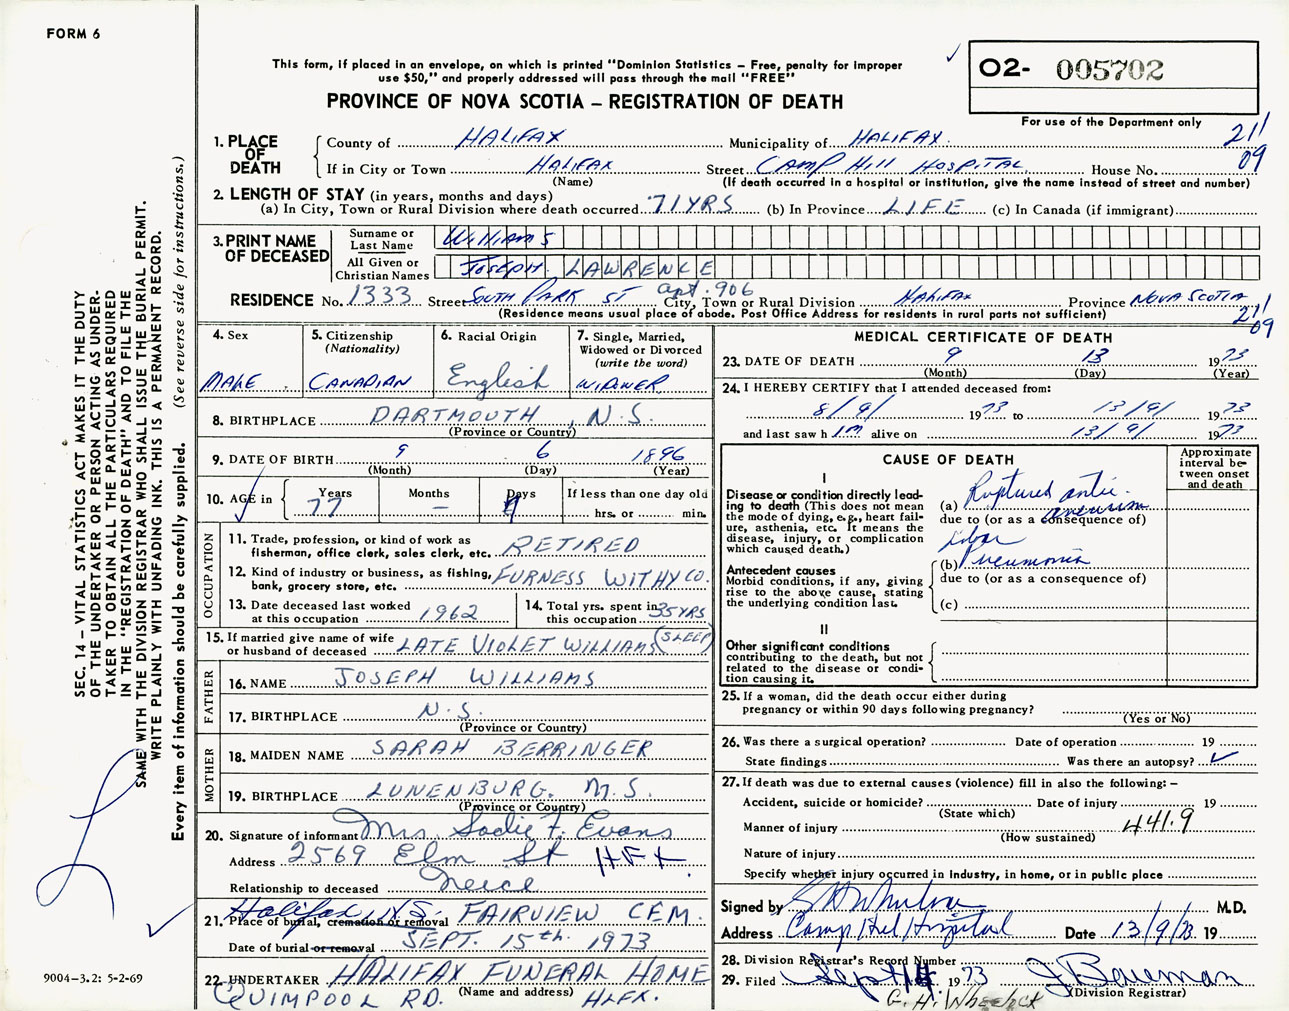 FORM 6
This form, if placed in an envelope, on which is printed "Dominion Statistics – Free, penalty for improper
use $50," and properly addressed will pass through the mail "FREE"
PROVINCE OF NOVA SCOTIA – REGISTRATION OF DEATH
O2- 005702
For use of the Department only
21/
09
1. PLACE OF DEATH
County of HALIFAX Municipality of HALIFAX.
If in City or Town HALIFAX Street CAMP HILL HOSPITAL House No.
(Name) (If death occurred in a hospital or institution, give the name instead of street and number)
2. LENGTH OF STAY (in years, months and days)
(a) In City, Town or Rural Division where death occurred 71 YRS (b) In Province LIFE (c) In Canada (if immigrant)
3. PRINT NAME OF DECEASED
Surname or Last Name WILLIAMS
All Given or Christian Names JOSEPH LAWRENCE
RESIDENCE No. 1333 Street SOUTH PARK ST apt. 906 City, Town or Rural Division HALIFAX Province NOVA SCOTIA
(Residence means usual place of abode. Post Office Address for residents in rural parts not sufficient)
21/
09
4. Sex MALE
5. Citizenship (Nationality) CANADIAN
6. Racial Origin English
7. Single, Married, Widowed or Divorced (write the word) WIDWER
8. BIRTHPLACE DARTMOUTH, N.S.
(Province or Country)
9. DATE OF BIRTH 9 6 1896
(Month) (Day) (Year)
10. AGE in Years Months Days If less than one day old
77 – hrs. or min.
OCCUPATION
11. Trade, profession, or kind of work as
fisherman, office clerk, sales clerk, etc. RETIRED
12. Kind of industry or business, as fishing,
bank, grocery store, etc. FURNESS WITHY CO.
13. Date deceased last worked
at this occupation 1962
14. Total yrs. spent in
this occupation 35 YRS
15. If married give name of wife
or husband of deceased LATE VIOLET WILLIAMS (SLEEP)
FATHER
16. NAME JOSEPH WILLIAMS
17. BIRTHPLACE N.S.
(Province or Country)
MOTHER
18. MAIDEN NAME SARAH BERRINGER
19. BIRTHPLACE LUNENBURG. N.S.
(Province or Country)
20. Signature of informant Mrs. Sadie F. Evans
Address 2569 Elm St Hfx
Relationship to deceased Neice
21. Place of burial, cremation or removal Halifax, N.S. FAIRVIEW CEM.
Date of burial or removal SEPT. 15th. 1973
22. UNDERTAKER HALIFAX FUNERAL HOME
(Name and address)
QUIMPOOL RD. HLFX.
MEDICAL CERTIFICATE OF DEATH
23. DATE OF DEATH 9 13 1973
(Month) (Day) (Year)
24. I HEREBY CERTIFY that I attended deceased from:
8/9/ 1973 to 13/9/ 1973
and last saw h im alive on 13/9/ 1973
CAUSE OF DEATH
Approximate
interval be-
tween onset
and death
I
Disease or condition directly lead-
ing to death (This does not mean
the mode of dying, e.g., heart fail-
ure, asthenia, etc. It means the
disease, injury, or complication
which caused death.)
(a) Ruptured aortic aneurism
due to (or as a consequence of)
Antecedent causes
Morbid conditions, if any, giving
rise to the above cause, stating
the underlying condition last.
lobar
(b) Pneumonia
due to (or as a consequence of)
(c)
II
Other significant conditions
contributing to the death, but not
related to the disease or condi-
tion causing it.
25. If a woman, did the death occur either during
pregnancy or within 90 days following pregnancy?
(Yes or No)
26. Was there a surgical operation? Date of operation 19
State findings Was there an autopsy? ✓
27. If death was due to external causes (violence) fill in also the following: –
Accident, suicide or homicide? Date of injury 19
(State which)
Manner of injury 441.9
(How sustained)
Nature of injury
Specify whether injury occurred in industry, in home, or in public place
Signed by M.D.
Address Camp Hill Hospital Date 13/9/73 19
28. Division Registrar's Record Number
29. Filed Sept 14 1973 J Bauman
(Division Registrar)
G. H. Wheelock
SEC. 14 – VITAL STATISTICS ACT MAKES IT THE DUTY
OF THE UNDERTAKER OR PERSON ACTING AS UNDER-
TAKER TO OBTAIN ALL THE PARTICULARS REQUIRED
IN THE "REGISTRATION OF DEATH" AND TO FILE THE
SAME WITH THE DIVISION REGISTRAR WHO SHALL ISSUE THE BURIAL PERMIT.
WRITE PLAINLY WITH UNFADING INK. THIS IS A PERMANENT RECORD.
Every item of information should be carefully supplied. (See reverse side for instructions.)
9004–3.2: 5-2-69